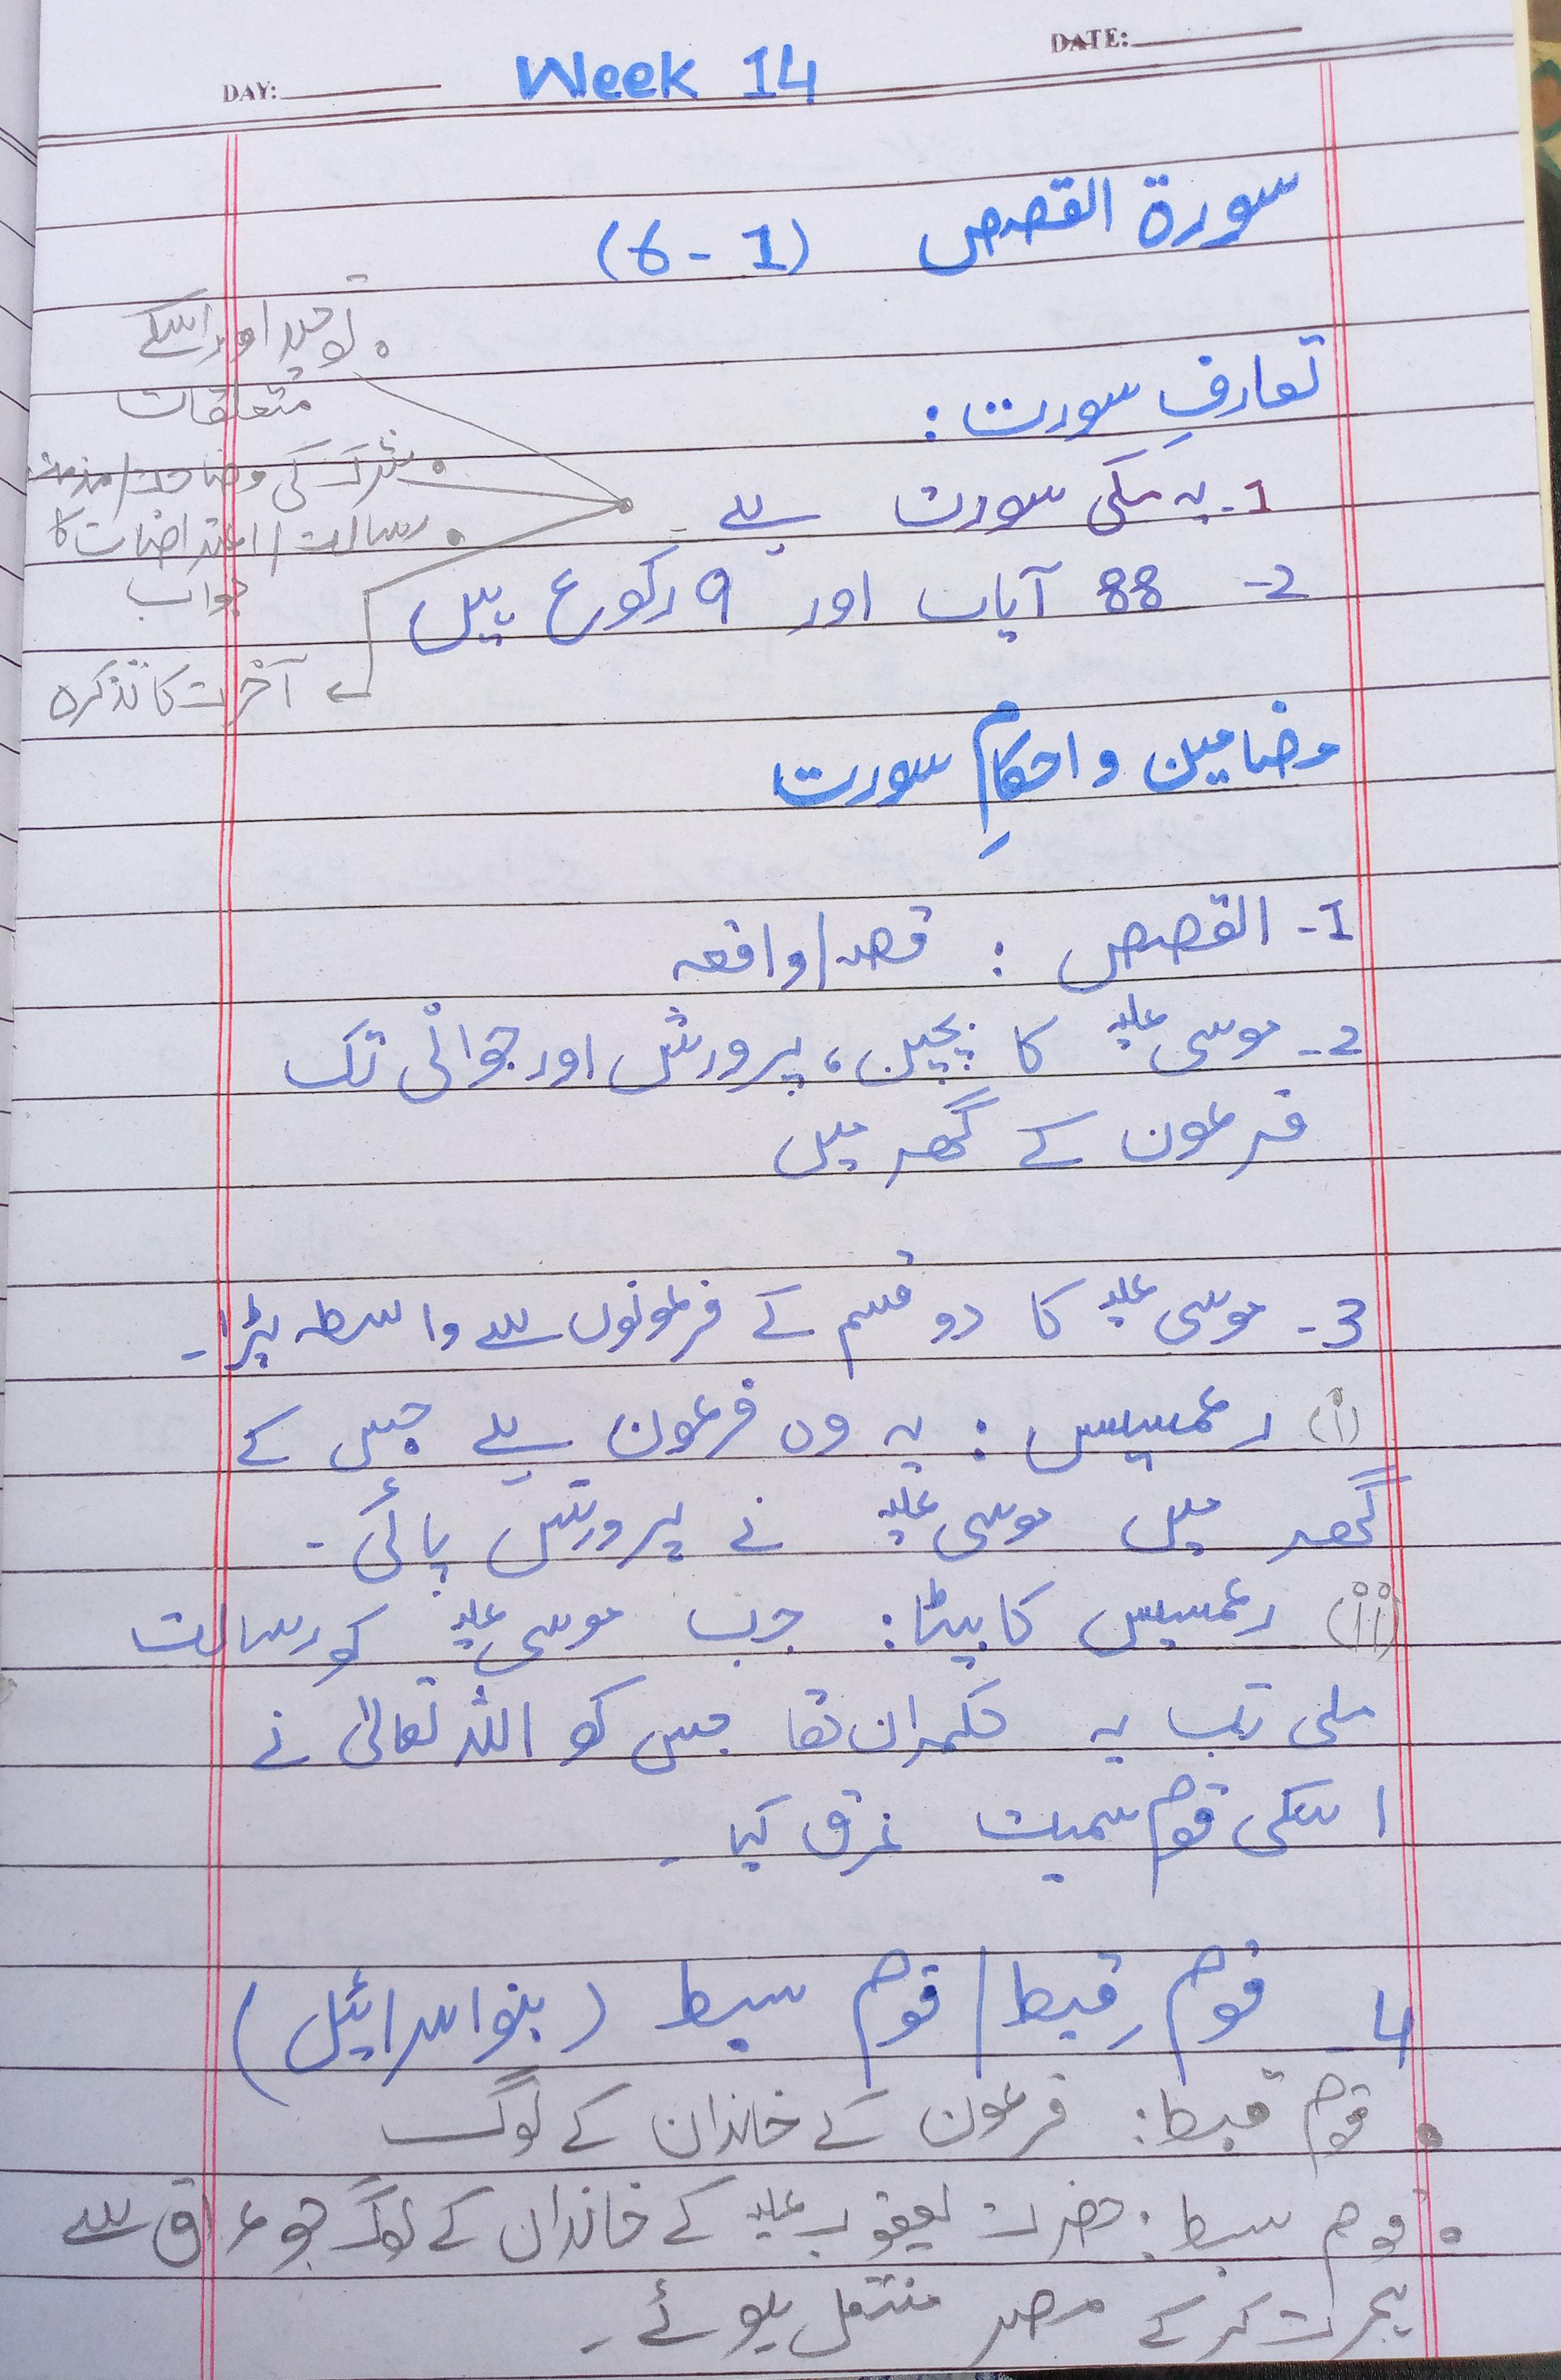 DATE:
DAY:
Week 14
سورۃ القصص (1 - 6)
تعارفِ سورت :
1- یہ مکی سورت ہے -
2- 88 آیات اور 9 رکوع ہیں
توحید اور اسکے
متعلقات
شرک کی وضاحت/مذمت
رسالت / اعتراضات کا
جواب
آخرت کا تذکرہ
مضامین و احکامِ سورت
1- القصص : قصہ/واقعہ
2- موسی علیہ کا بچپن، پرورش اور جوانی تک
فرعون کے گھر میں
3- موسی علیہ کا دو قسم کے فرعونوں سے واسطہ پڑا۔
(i) رعمسیس : یہ وہ فرعون ہے جس کے
گھر میں موسی علیہ نے پرورش پائی -
(ii) رعمسیس کا بیٹا: جب موسی علیہ کو رسالت
ملی تب یہ حکمران تھا جس کو اللہ تعالیٰ نے
اسکی قوم سمیت غرق کیا -
4- قومِ قبط / قوم سبط (بنو اسرائیل)
• قوم قبط: فرعون کے خاندان کے لوگ
• قوم سبط: حضرت یعقوب علیہ کے خاندان کے لوگ جو عراق سے
ہجرت کر کے مصر منتقل ہوئے -